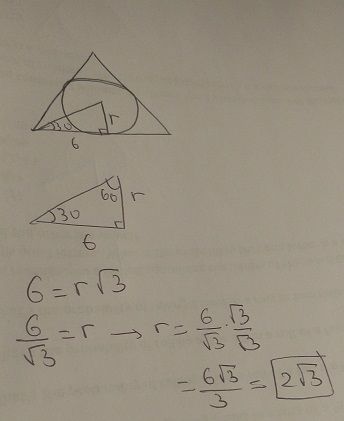 30 r
6
60 r
30
6
6 = r√3
6/√3 = r → r = 6/√3 · √3/√3
= 6√3/3 = 2√3